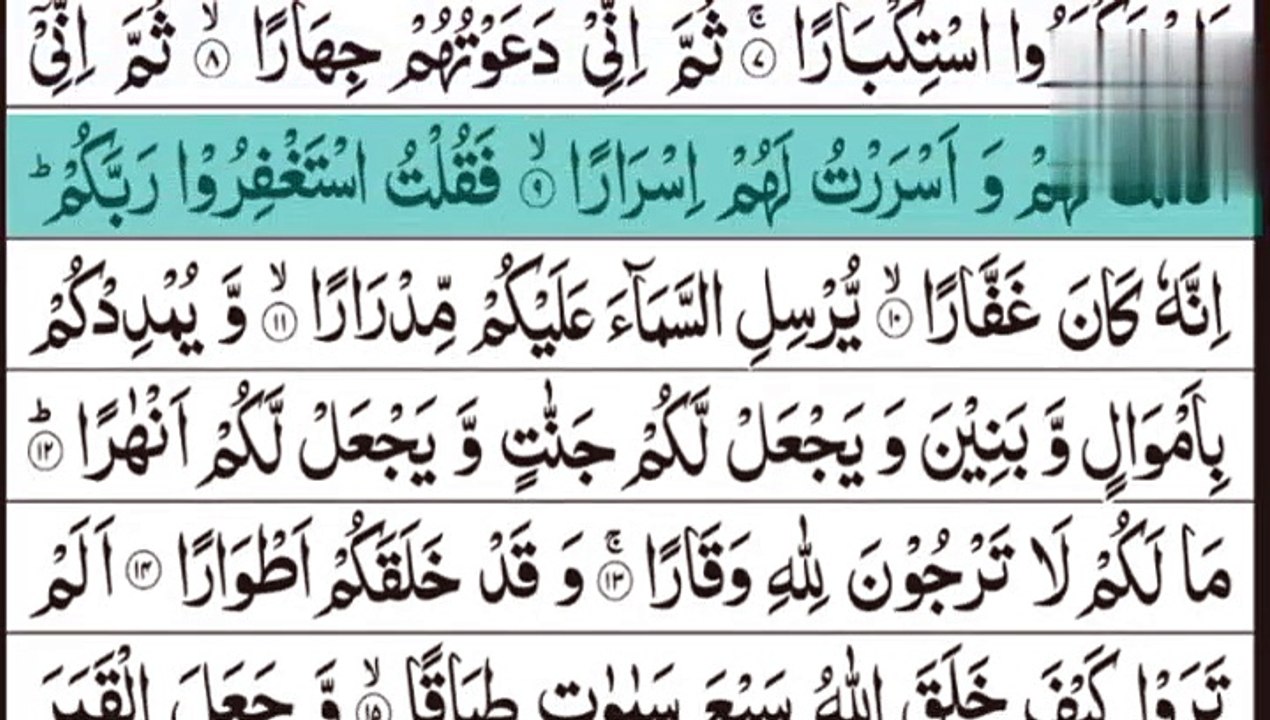 اسْتِكْبَارًا ۚ ۷ ثُمَّ اِنِّیْ دَعَوْتُهُمْ جِهَارًا ۙ ۸ ثُمَّ اِنِّیْۤ
لَهُمْ وَ اَسْرَرْتُ لَهُمْ اِسْرَارًا ۙ ۹ فَقُلْتُ اسْتَغْفِرُوْا رَبَّكُمْ ؕ
اِنَّهٗ كَانَ غَفَّارًا ۙ ۱۰ یُّرْسِلِ السَّمَآءَ عَلَیْكُمْ مِّدْرَارًا ۙ ۱۱ وَّ یُمْدِدْكُمْ
بِاَمْوَالٍ وَّ بَنِیْنَ وَ یَجْعَلْ لَّكُمْ جَنّٰتٍ وَّ یَجْعَلْ لَّكُمْ اَنْهٰرًا ؕ ۱۲
مَا لَكُمْ لَا تَرْجُوْنَ لِلّٰهِ وَقَارًا ۚ ۱۳ وَ قَدْ خَلَقَكُمْ اَطْوَارًا ۱۴ اَلَمْ
تَرَوْا كَیْفَ خَلَقَ اللّٰهُ سَبْعَ سَمٰوٰتٍ طِبَاقًا ۙ ۱۵ وَّ جَعَلَ الْقَمَرَ